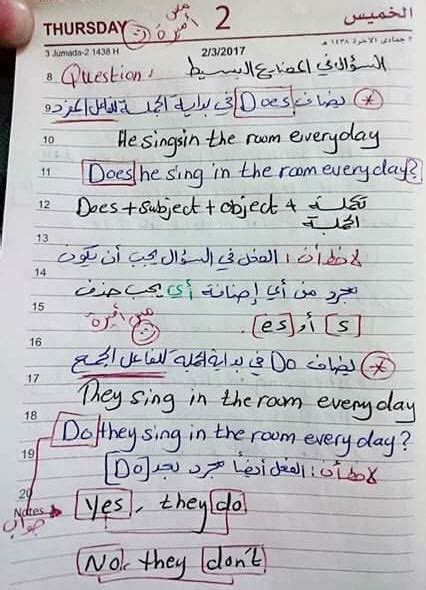 THURSDAY مس أميرة 2 الخميس
3 Jumada-2 1438 H 2/3/2017 ٣ جمادى الآخرة ١٤٣٨ هـ
8 Question: السؤال في المضارع البسيط
9 يضاف Does في بداية الجملة للفاعل المفرد
10 He sings in the room everyday
11 Does he sing in the room everyday?
12 Does + subject + object + تكملة
الجملة
13
لاحظ أن: الفعل في السؤال يجب أن يكون
14
مجرد من أي إضافة أي يجب حذف
15
[s] أو [es]. مس أميرة
16
يضاف Do في بداية الجملة للفاعل الجمع
17
They sing in the room everyday
18
Do they sing in the room everyday?
19
لاحظ أن: الفعل أيضاً مجرد بعد [Do]
20
Notes جواب Yes, they do
No, they don't